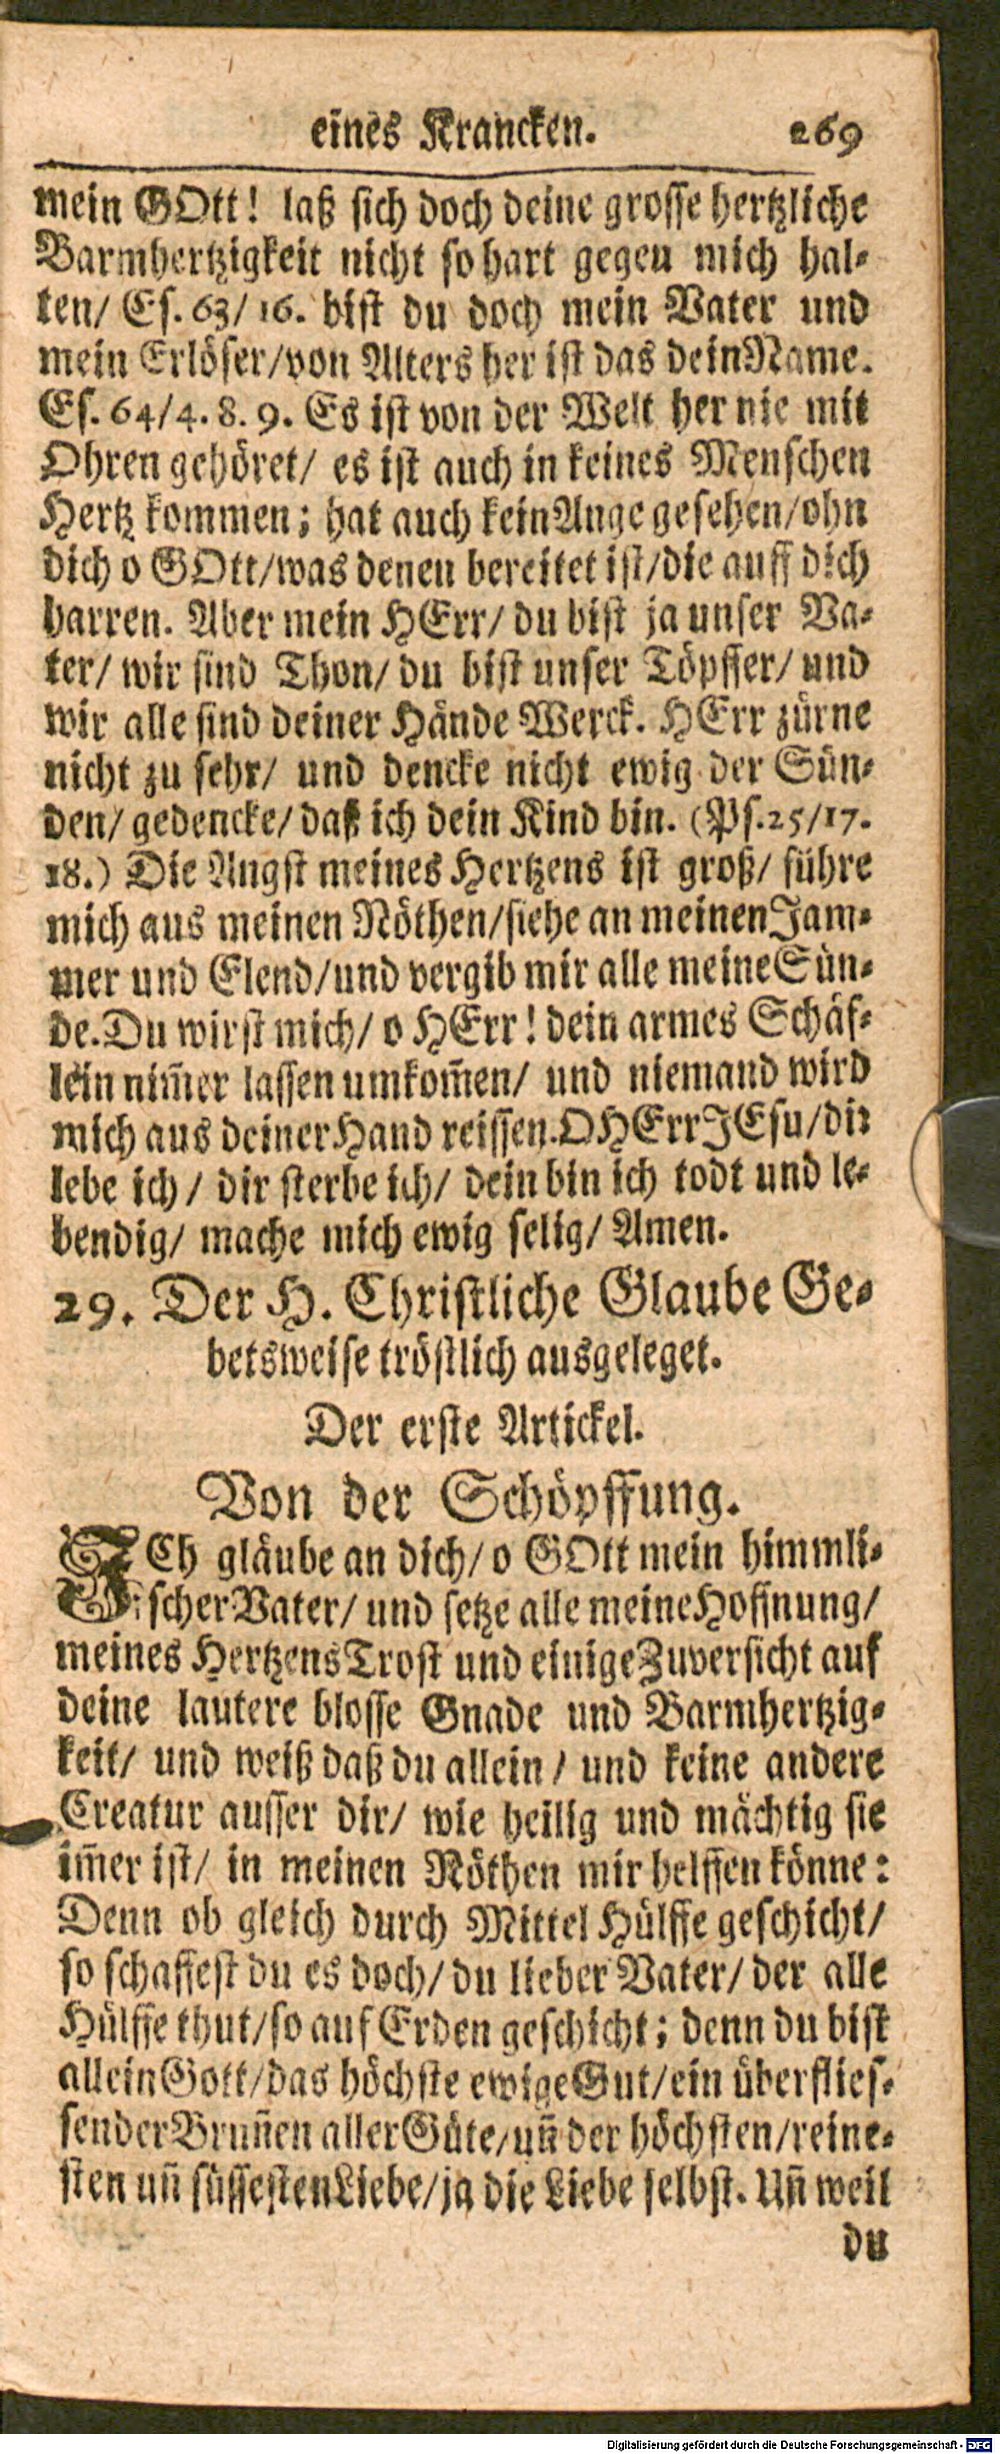 eines Krancken. 269
mein GOtt! laß sich doch deine grosse hertzliche
Barmhertzigkeit nicht so hart gegen mich hal-
ten/ Es. 63/ 16. bist du doch mein Vater und
mein Erlöser/von Alters her ist das dein Name.
Es. 64/4. 8. 9. Es ist von der Welt her nie mit
Ohren gehöret/ es ist auch in keines Menschen
Hertz kommen; hat auch kein Auge gesehen/ohn
dich o GOtt/was denen bereitet ist/die auff dich
harren. Aber mein HErr/ du bist ja unser Va-
ter/ wir sind Thon/ du bist unser Töpffer/ und
wir alle sind deiner Hände Werck. HErr zürne
nicht zu sehr/ und dencke nicht ewig der Sün-
den/ gedencke/ daß ich dein Kind bin. (Ps.25/17.
18.) Die Angst meines Hertzens ist groß/ führe
mich aus meinen Nöthen/siehe an meinen Jam-
mer und Elend/und vergib mir alle meine Sün-
de. Du wirst mich/ o HErr! dein armes Schäf-
lein nim̄er lassen umkom̄en/ und niemand wird
mich aus deiner Hand reissen. O HErr JEsu/dir
lebe ich/ dir sterbe ich/ dein bin ich todt und le-
bendig/ mache mich ewig selig/ Amen.
29. Der H. Christliche Glaube Ge-
betsweise tröstlich ausgeleget.
Der erste Artickel.
Von der Schöpffung.
JCh gläube an dich/ o GOtt mein himmli-
scher Vater/ und setze alle meine Hoffnung/
meines Hertzens Trost und einige Zuversicht auf
deine lautere blosse Gnade und Barmhertzig-
keit/ und weiß daß du allein/ und keine andere
Creatur ausser dir/ wie heilig und mächtig sie
im̄er ist/ in meinen Nöthen mir helffen könne:
Denn ob gleich durch Mittel Hülffe geschicht/
so schaffest du es doch/ du lieber Vater/ der alle
Hülffe thut/so auf Erden geschicht; denn du bist
allein Gott/das höchste ewige Gut/ein überflies-
sender Brun̄en aller Güte/un̄ der höchsten/reine-
sten un̄ süssesten Liebe/ja die Liebe selbst. Un̄ weil
du
Digitalisierung gefördert durch die Deutsche Forschungsgemeinschaft - DFG